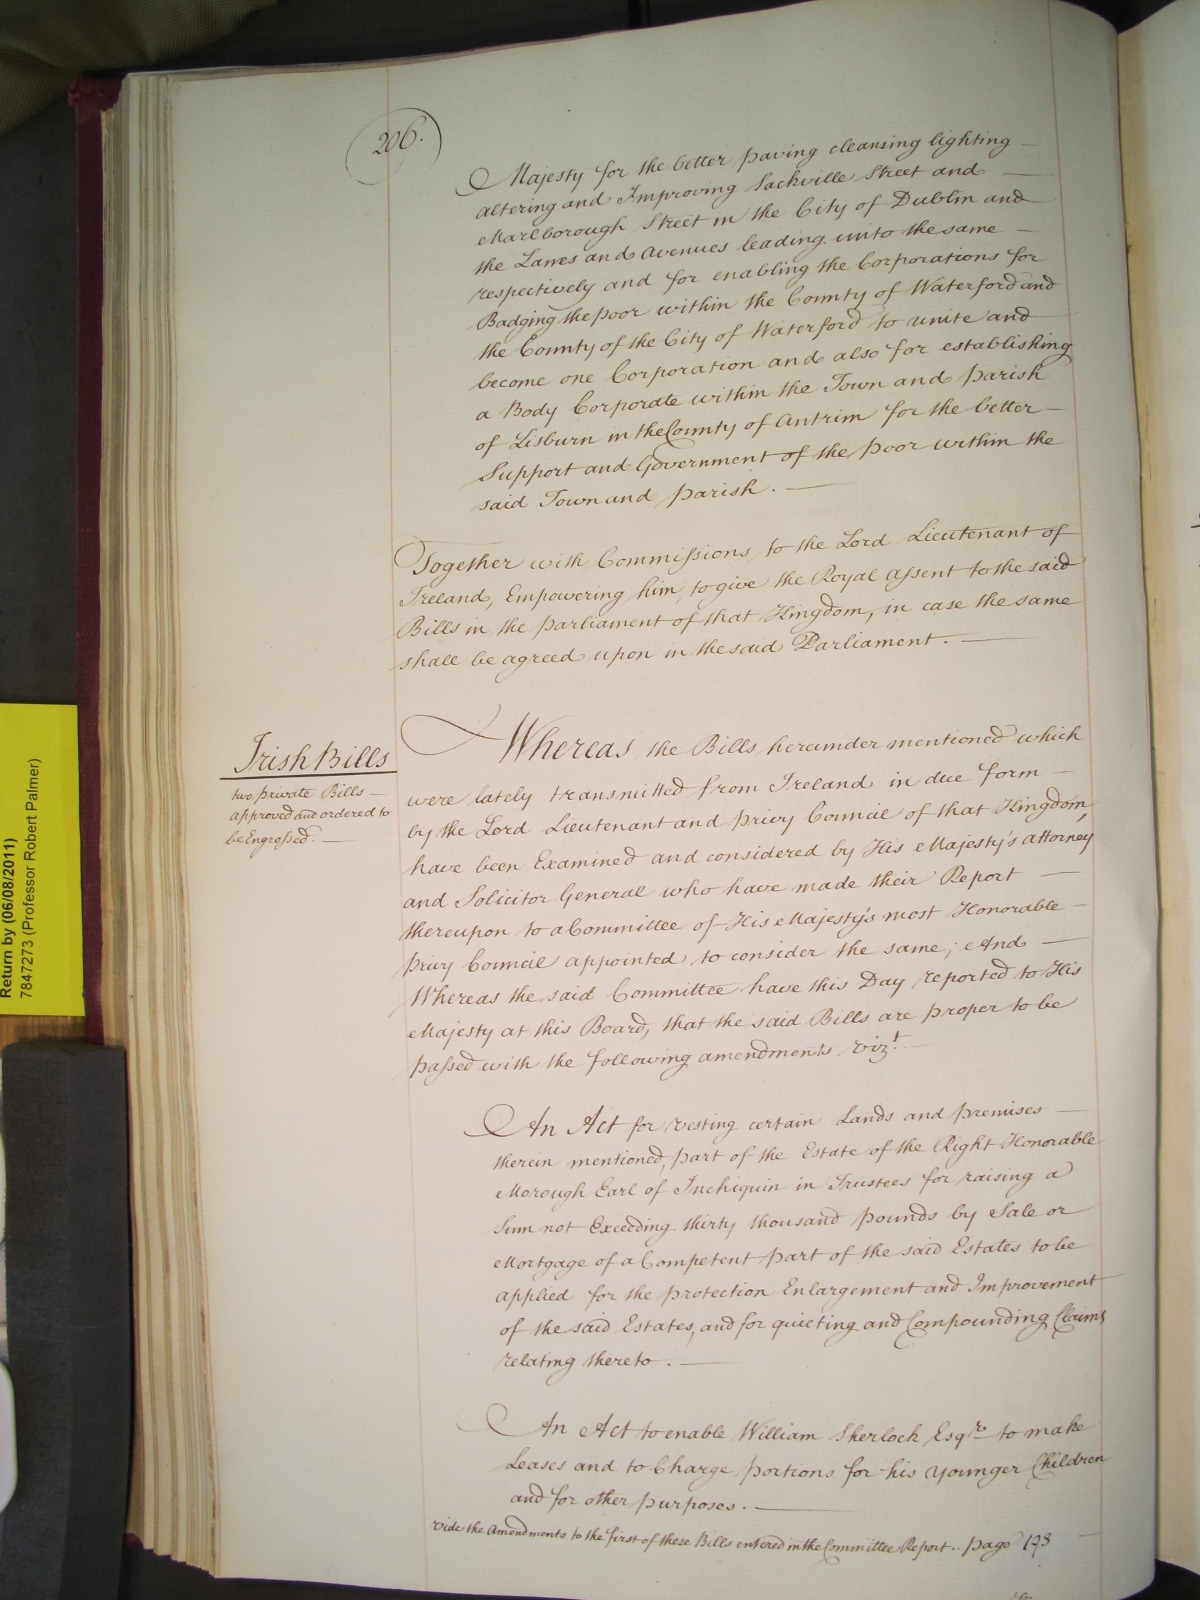 206.
Majesty for the better paving cleansing lighting —
altering and Improving Sackville Street and —
Marlborough Street in the City of Dublin and
the Lanes and Avenues leading unto the same —
respectively and for enabling the Corporations for
Badging the poor within the County of Waterford and
the County of the City of Waterford to unite and
become one Corporation and also for establishing
a Body Corporate within the Town and Parish
of Lisburn in the County of Antrim for the better —
Support and Government of the Poor within the
said Town and Parish. —
Together with Commissions, to the Lord Lieutenant of
Ireland, Empowering him, to give the Royal Assent to the said
Bills in the Parliament of that Kingdom, in case the same
shall be agreed upon in the said Parliament. —
Irish Bills
two private Bills —
approved and ordered to
be Engrossed. —
Whereas the Bills hereunder mentioned which
were lately transmitted from Ireland in due form —
by the Lord Lieutenant and Privy Council of that Kingdom,
have been Examined and considered by His Majesty's Attorney
and Solicitor General who have made their Report —
thereupon to a Committee of His Majesty's most Honorable —
Privy Council appointed to consider the same; And —
Whereas the said Committee have this Day reported to His
Majesty at this Board, that the said Bills are proper to be
passed with the following amendments Vizt. —
An Act for vesting certain Lands and premises —
therein mentioned, part of the Estate of the Right Honorable
Morough Earl of Inchiquin in Trustees for raising a
Sum not Exceeding thirty thousand pounds by Sale or
Mortgage of a Competent part of the said Estates to be
applied for the Protection Enlargement and Improvement
of the said Estates, and for quieting and Compounding Claims
relating thereto. —
An Act to enable William Sherlock Esqre. to make
Leases and to Charge portions for his Younger Children
and for other purposes. —
Vide the Amendments to the first of these Bills entered in the Committee Report.. page 193
Return by (06/08/2011)
7847273 (Professor Robert Palmer)